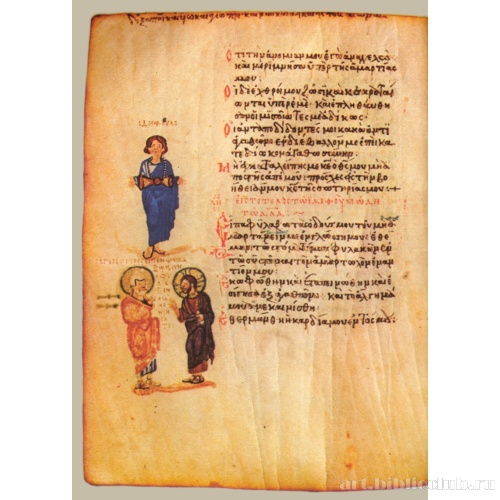 Ὅτι τὴν ἀνομίαν μου ἐγὼ ἀναγγελῶ
καὶ μεριμνήσω ὑπὲρ τῆς ἁμαρτίας
μου:
Οἱ δὲ ἐχθροί μου ζῶσι καὶ κεκραταί
ωνται ὑπὲρ ἐμέ· καὶ ἐπληθύνθη
σαν οἱ μισοῦντές με ἀδίκως:
Οἱ ἀνταποδιδόντες μοι κακὰ ἀντὶ
ἀγαθῶν ἐνδιέβαλλόν με ἐπεὶ κα
τεδίωκον ἀγαθωσύνην:
Μὴ ἐγκαταλίπῃς με κε ὁ θς μου μὴ ἀ
ποστῇς ἀπ' ἐμοῦ: πρόσχες εἰς τὴν βο
ήθειάν μου κε τῆς σωτηρίας μου:
εἰς τὸ τέλος τῷ ἰδιθοὺμ ᾠδὴ
τῷ δαδ
Εἶπα φυλάξω τὰς ὁδούς μου τοῦ μὴ ἁ
μαρτάνειν με ἐν γλώσσῃ μου: ἐθέ
μην τῷ στόματί μου φυλακὴν ἐν
τῷ συστῆναι τὸν ἁμαρτωλὸν ἐναν
τίον μου:
Ἐκωφώθην καὶ ἐταπεινώθην καὶ ἐ
σίγησα ἐξ ἀγαθῶν: καὶ τὸ ἄλγημά
μου ἀνεκαινίσθη:
Ἐθερμάνθη ἡ καρδία μου ἐντός μου:
art.biblioclub.ru